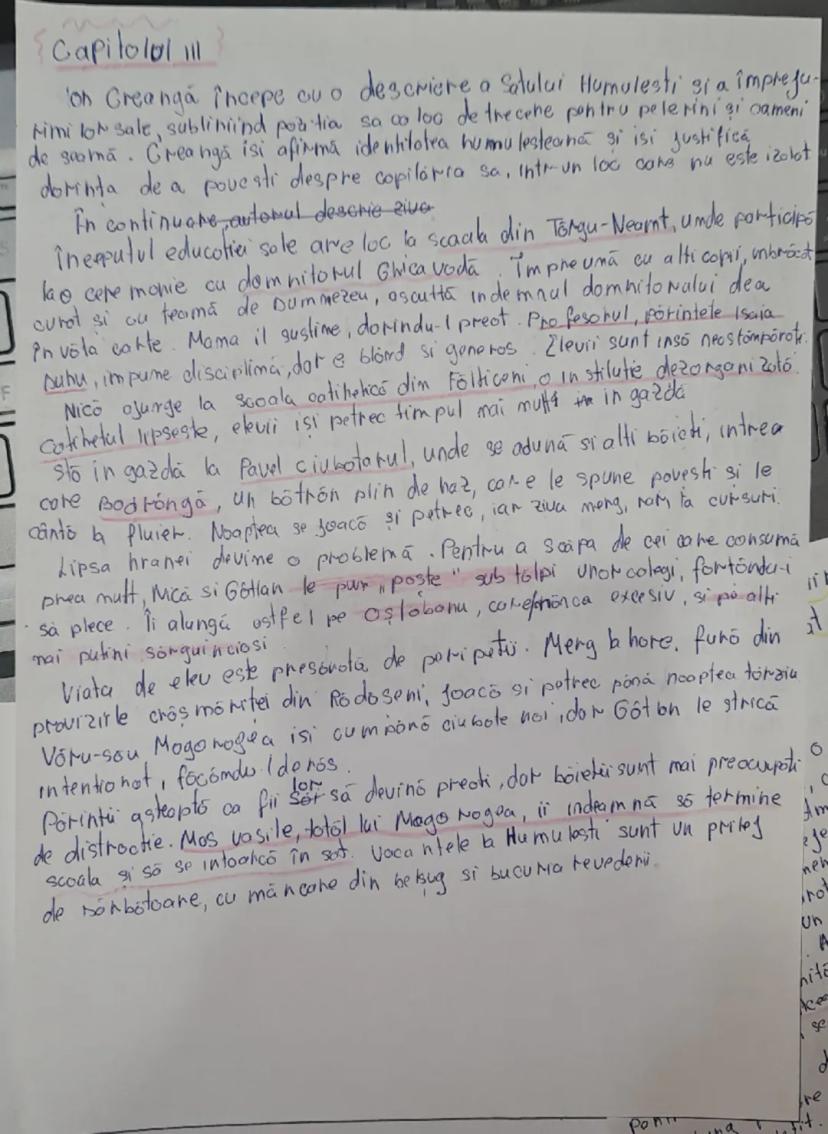 Capitolul III
Ion Creangă începe cu o descriere a Satului Humulești și a împreju-
rimilor sale, subliniind poziția sa ca loc de trecere pentru pelerini și oameni
de seamă. Creangă isi afirmă identitatea humulesteană și isi justifică
dorința de a povesti despre copilăria sa, intr-un loc care nu este izolat
În continuare, autorul descrie ziua
Începutul educației sale are loc la scoala din Târgu-Neamt, unde participă
la o ceremonie cu domnitorul Ghica Vodă. Împreună cu alti copii, imbrăcat
curat și cu teamă de Dumnezeu, ascultă indemnul domnitorului de a
învăta carte. Mama il sustine, dorindu-l preot. Profesorul, părintele Isaia
Duhu, impune disciplină, dar e blând si generos. Elevii sunt insă neastâmpărati
Nică ajunge la scoala catihetică din Fălticeni, o institutie dezorganizată.
Catihetul lipseste, elevii iși petrec timpul mai mult in gazdă
stă in gazdă la Pavel Ciubotarul, unde se adună si alti băieti, intrea
care Bodrângă, un bătrân plin de haz, care le spune povesti si le
cântă la fluier. Noaptea se joacă și petrec, iar ziua merg, rar, la cursuri.
Lipsa hranei devine o problemă. Pentru a scăpa de cei care consumă
prea mult, Nică si Gâtlan le pun "poste" sub tălpi unor colegi, fortându-i
să plece. Îi alungă astfel pe Oșlobanu, care mânca excesiv, si pe alti
mai putini sârguinciosi.
Viata de elev este presărată de peripetii. Merg la hore, fură din
proviziile crâșmăritei din Rădăseni, joacă si petrec până noaptea târziu
Văru-său Mogorogea isi cumpără ciubote noi, dar Gâtlan le strică
intentionat, făcându-l de râs.
Părintii asteaptă ca fii lor să devină preoti, dar băietii sunt mai preocupati
de distractie. Mos Vasile, tatăl lui Mogorogea, ii indeamnă să termine
scoala și să se intoarcă în sat. Vacantele la Humulesti sunt un prilej
de sărbătoare, cu mâncare din belsug si bucuria revederii.